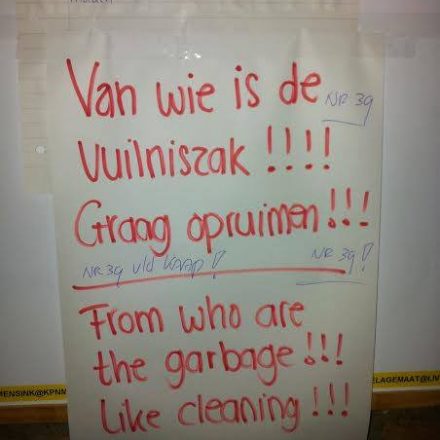 Van wie is de NR 39
vuilniszak !!!!
Graag opruimen !!!
NR 39 v/d KAAP! NR 39!
From who are
the garbage !!!
Like cleaning !!!
MENSINK@KPNM
ELAGEMAAT@LIV